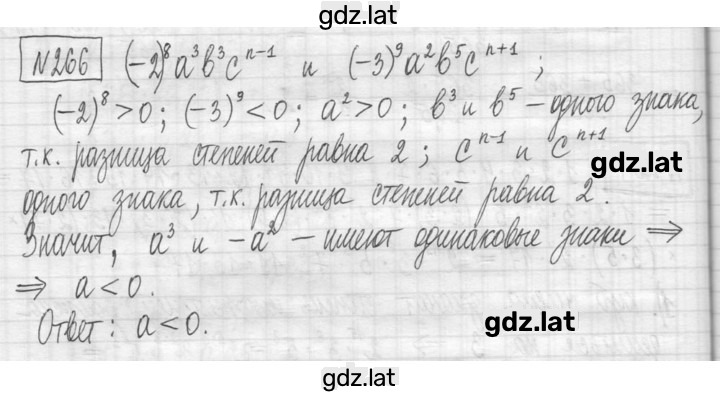 gdz.lat
№266 (-2)⁸a³b³cⁿ⁻¹ и (-3)⁹a²b⁵cⁿ⁺¹ ;
(-2)⁸>0; (-3)⁹<0; a²>0; b³ и b⁵ – одного знака,
т.к. разница степеней равна 2; cⁿ⁻¹ и cⁿ⁺¹
gdz.lat
одного знака, т.к. разница степеней равна 2.
Значит, a³ и -a² – имеют одинаковые знаки ⇒
⇒ a<0.
Ответ: a<0.
gdz.lat
gdz.lat